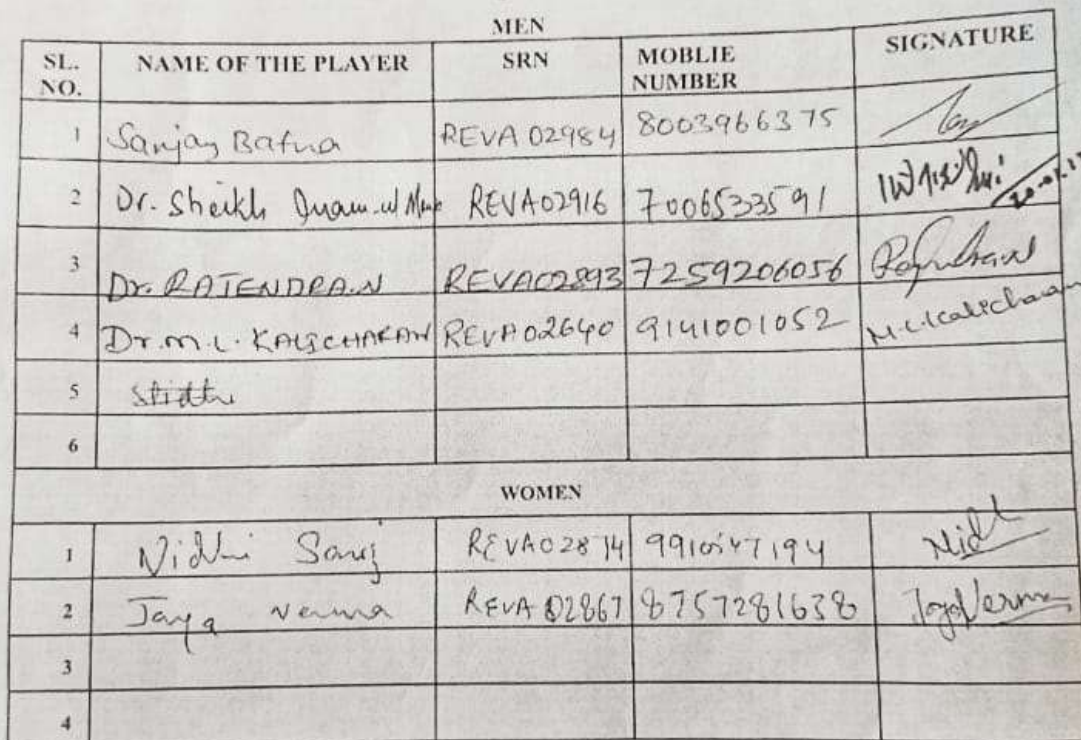 MEN
SL. NO. NAME OF THE PLAYER SRN MOBLIE NUMBER SIGNATURE
1 Sanjay Bafna REVA 02984 8003966375
2 Dr. Sheikh Inam-ul REVA02916 7006533591
3 Dr. RAJENDRA.N REVA02893 7259206056
4 Dr. M. L. KALICHARAN REVA02640 9141001052 M.L.Kalicharan
5
6
WOMEN
1 Nidhi REVA02874 Nidhi
2 Jaya Verma REVA 02867 8757281638 Jaya Verma
3
4